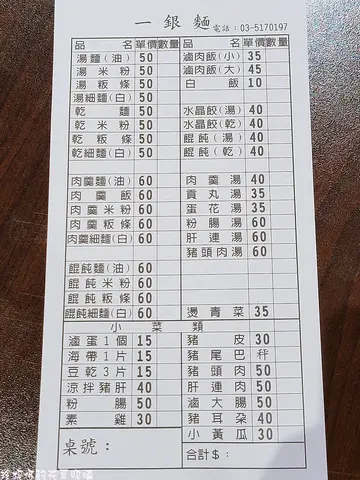 一銀麵 電話：03-5170197
品名 單價 數量 品名 單價 數量
湯麵(油) 50 滷肉飯(小) 35
湯米粉 50 滷肉飯(大) 45
湯粄條 50 白飯 10
湯細麵(白) 50
乾麵 50 水晶餃(湯) 40
乾米粉 50 水晶餃(乾) 40
乾粄條 50 餛飩(湯) 40
乾細麵(白) 50 餛飩(乾) 40
肉羹麵(油) 60 肉羹湯 40
肉羹飯 60 貢丸湯 35
肉羹米粉 60 蛋花湯 35
肉羹粄條 60 粉腸湯 60
肉羹細麵(白) 60 肝連湯 60
豬頭肉湯 60
餛飩麵(油) 60
餛飩米粉 60
餛飩粄條 60
餛飩細麵(白) 60 燙青菜 35
小菜類
滷蛋1個 15 豬皮 30
海帶1片 15 豬尾巴 秤
豆乾3片 15 豬頭肉 50
涼拌豬肝 40 肝連肉 50
粉腸 50 滷大腸 50
素雞 30 豬耳朵 40
小黃瓜 30
桌號： 合計$：